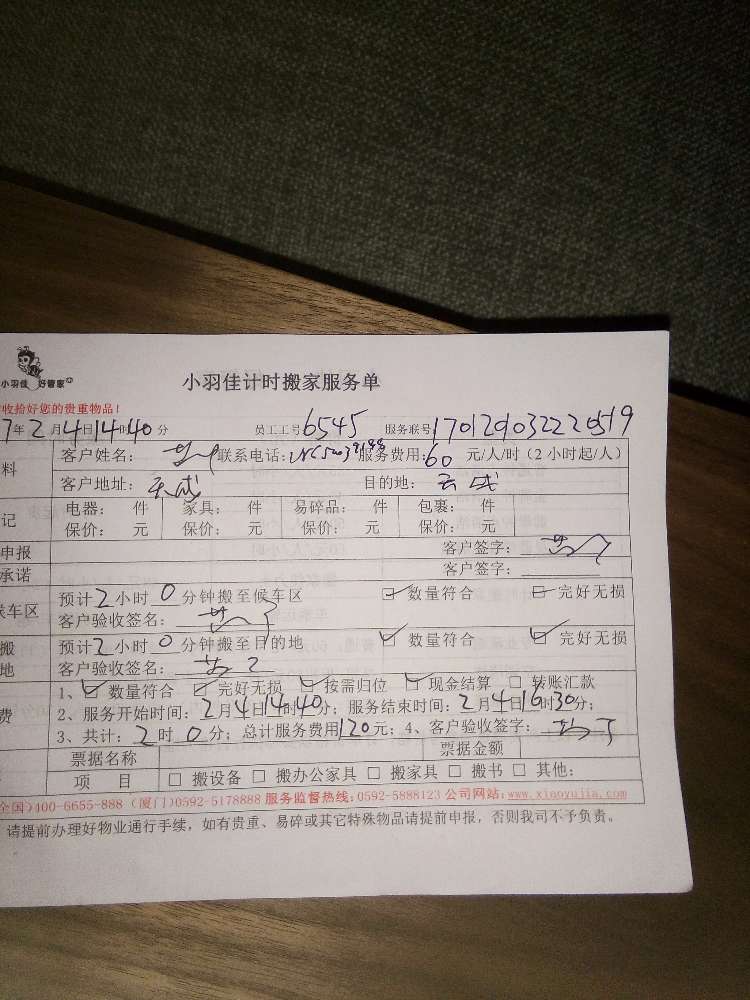 小羽佳 好管家
小羽佳计时搬家服务单
收拾好您的贵重物品！
7年2月4日14时40分 员工工号6545 服务联号
料 客户姓名： 联系电话： 服务费用：60 元/人/时（2小时起/人）
客户地址： 天成 目的地： 云成
记 电器： 件 家具： 件 易碎品： 件 包裹： 件
保价： 元 保价： 元 保价： 元 保价： 元
申报 客户签字：
承诺 客户签字：
候车区 预计2小时0分钟搬至候车区 ☑数量符合 ☑完好无损
客户验收签名：
搬 预计2小时0分钟搬至目的地 ☑数量符合 ☑完好无损
地 客户验收签名：
1、☑数量符合 ☑完好无损 ☑按需归位 ☑现金结算 □转账汇款
费 2、服务开始时间：2月4日14时40分；服务结束时间：2月4日16时30分；
3、共计：2时0分；总计服务费用120元；4、客户验收签字：
票据名称 票据金额
项 目 □搬设备 □搬办公家具 □搬家具 □搬书 □其他：
全国)400-6655-888 (厦门)0592-5178888 服务监督热线：0592-5888123 公司网站：www.xiaoyujia.com
请提前办理好物业通行手续，如有贵重、易碎或其它特殊物品请提前申报，否则我司不予负责。